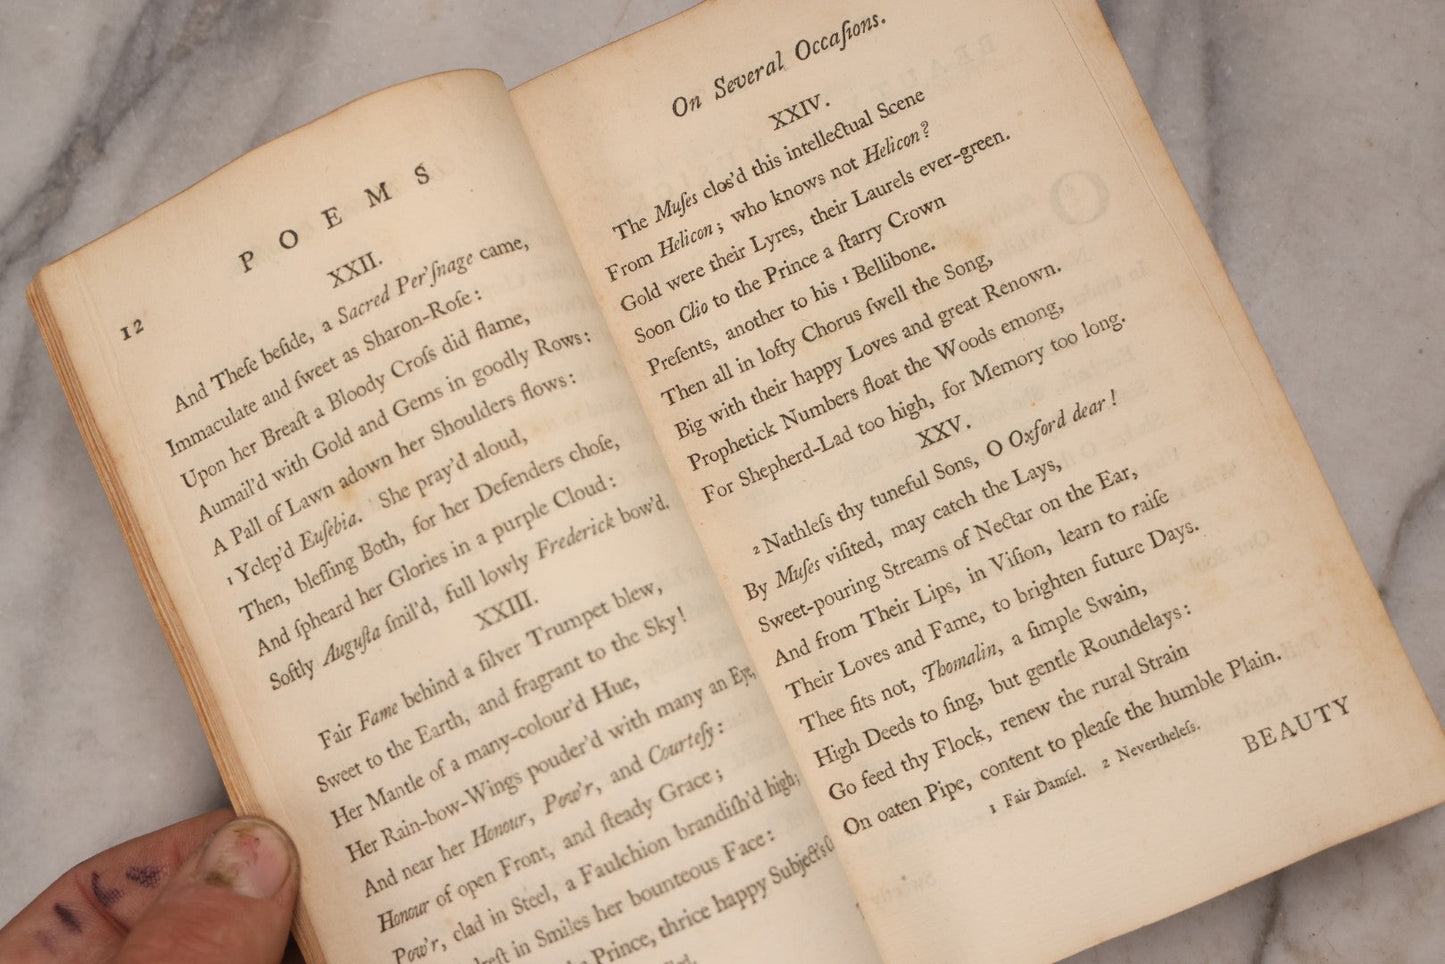 12
POEMS
XXII.
And Theſe beſide, a Sacred Per'ſnage came,
Immaculate and ſweet as Sharon-Roſe:
Upon her Breaſt a Bloody Croſs did flame,
Aumail'd with Gold and Gems in goodly Rows:
A Pall of Lawn adown her Shoulders flows:
1 Yclep'd Euſebia. She pray'd aloud,
Then, bleſſing Both, for her Defenders choſe,
And ſpheard her Glories in a purple Cloud:
Softly Auguſta ſmil'd, full lowly Frederick bow'd.
XXIII.
Fair Fame behind a ſilver Trumpet blew,
Sweet to the Earth, and fragrant to the Sky!
Her Mantle of a many-colour'd Hue,
Her Rain-bow-Wings pouder'd with many an Eye,
And near her Honour, Pow'r, and Courteſy:
Honour of open Front, and ſteady Grace;
Pow'r, clad in Steel, a Faulchion brandiſh'd high;
in Smiles her bounteous Face:
Prince, thrice happy Subject's
On Several Occaſions.
XXIV.
The Muſes clos'd this intellectual Scene
From Helicon; who knows not Helicon?
Gold were their Lyres, their Laurels ever-green.
Soon Clio to the Prince a ſtarry Crown
Preſents, another to his 1 Bellibone.
Then all in lofty Chorus ſwell the Song,
Big with their happy Loves and great Renown.
Prophetick Numbers float the Woods emong,
For Shepherd-Lad too high, for Memory too long.
XXV.
2 Nathleſs thy tuneful Sons, O Oxford dear!
By Muſes viſited, may catch the Lays,
Sweet-pouring Streams of Nectar on the Ear,
And from Their Lips, in Viſion, learn to raiſe
Their Loves and Fame, to brighten future Days.
Thee fits not, Thomalin, a ſimple Swain,
High Deeds to ſing, but gentle Roundelays:
Go feed thy Flock, renew the rural Strain
On oaten Pipe, content to pleaſe the humble Plain.
1 Fair Damſel. 2 Nevertheleſs.
BEAUTY